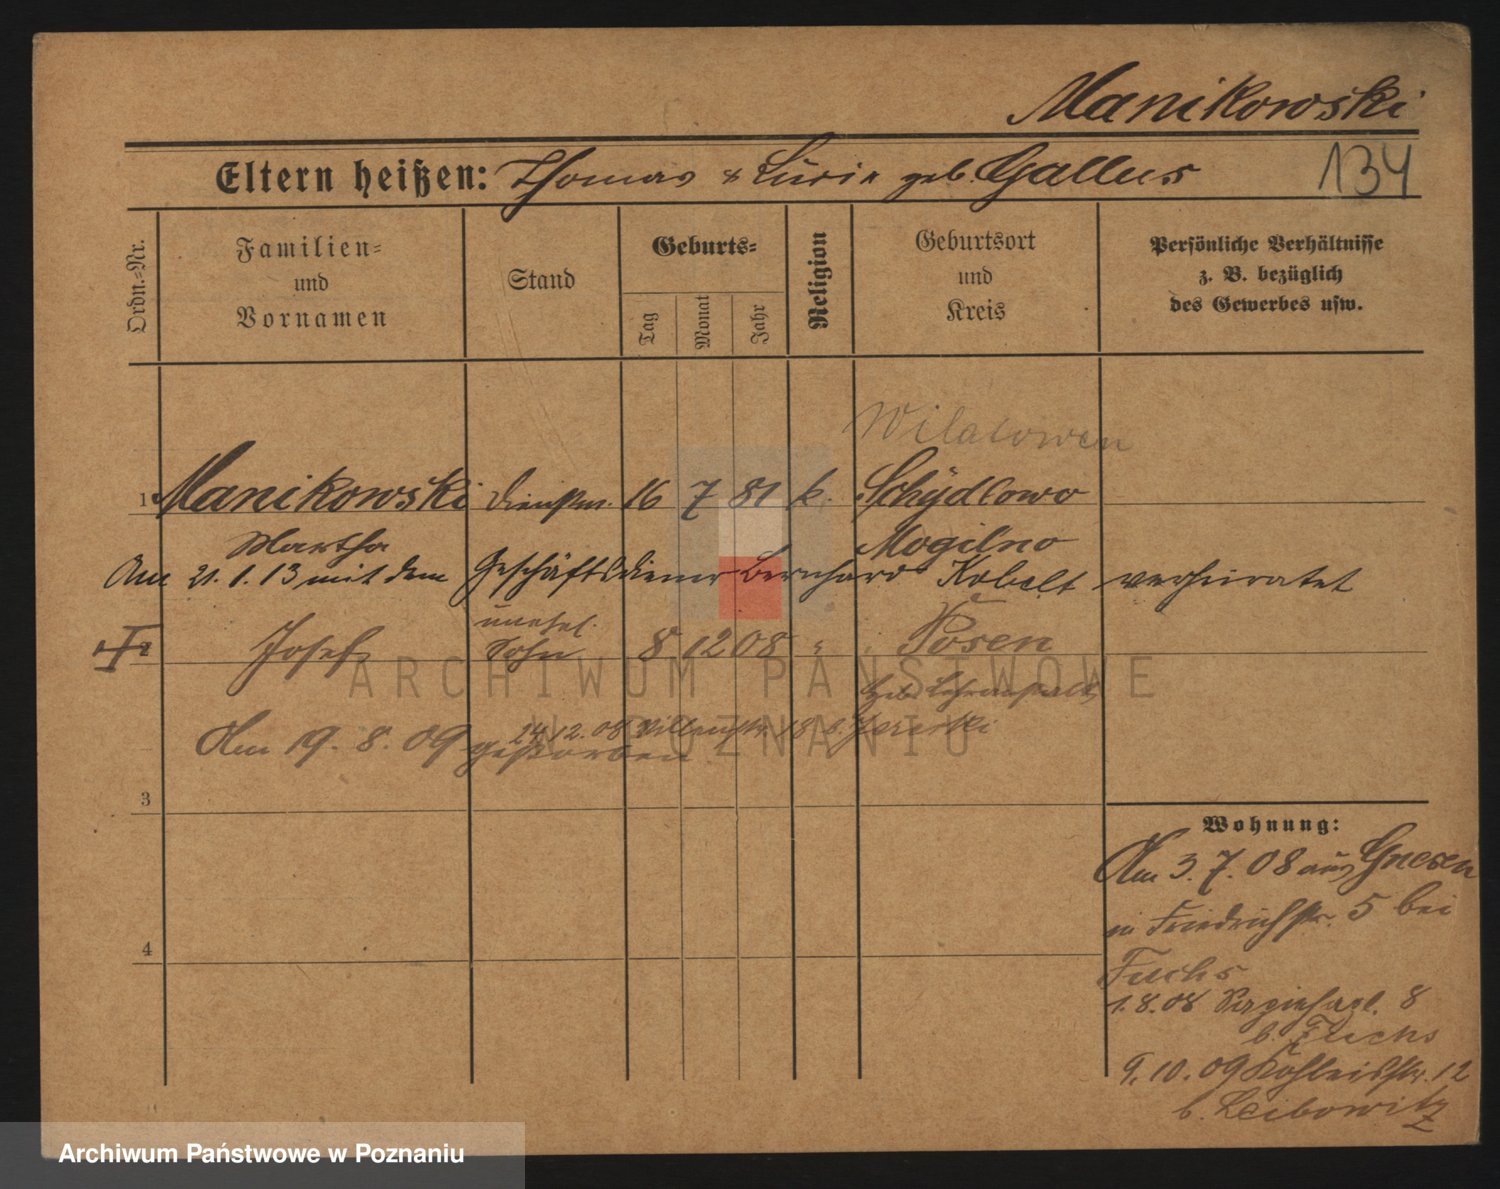 Manikowski
Eltern heißen: Thomas & Lucia geb. Gallus
134
Ordn.=Nr.
Familien=
und
Vornamen
Stand
Geburts=
Tag
Monat
Jahr
Religion
Geburtsort
und
Kreis
Persönliche Verhältnisse
z. B. bezüglich
des Gewerbes usw.
Wilatowen
1 Manikowski Dienstm. 16 7 81 k. Schydlowo
Martha Mogilno
Am 21.1.13 mit dem Geschäftsdiener Bernhard Kobelt verheiratet
unehel.
2 Josef Sohn 8 12 08 " Posen
14.12.08
Am 19. 8. 09 gestorben
3
Wohnung:
Am 3. 7. 08 aus Gnesen
in Friedrichstr. 5 bei
4
Fuchs
1.8.08 8
b. Fuchs
9.10.09 12
b. Leibowitz
ARCHIWUM PAŃSTWOWE
W POZNANIU
Archiwum Państwowe w Poznaniu